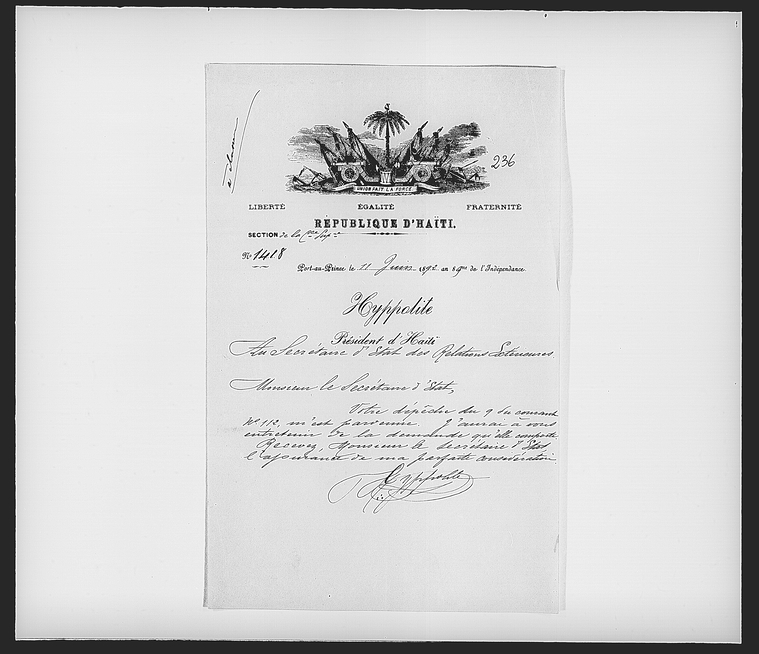 à classer
236
UNION FAIT LA FORCE
LIBERTÉ ÉGALITÉ FRATERNITÉ
RÉPUBLIQUE D'HAÏTI.
SECTION de la
No 1418
Port-au-Prince le 11 Juin 1892 an 89me de l'Indépendance.
Hyppolite
Président d'Haïti
Au Secrétaire d'Etat des Relations Extérieures
Monsieur le Secrétaire d'Etat,
Votre dépêche du 9 du courant
No 112, m'est parvenue. J'aurai à vous
entretenir de la demande qu'elle comporte
Recevez, Monsieur le Secrétaire d'Etat
l'assurance de ma parfaite considération
Hyppolite